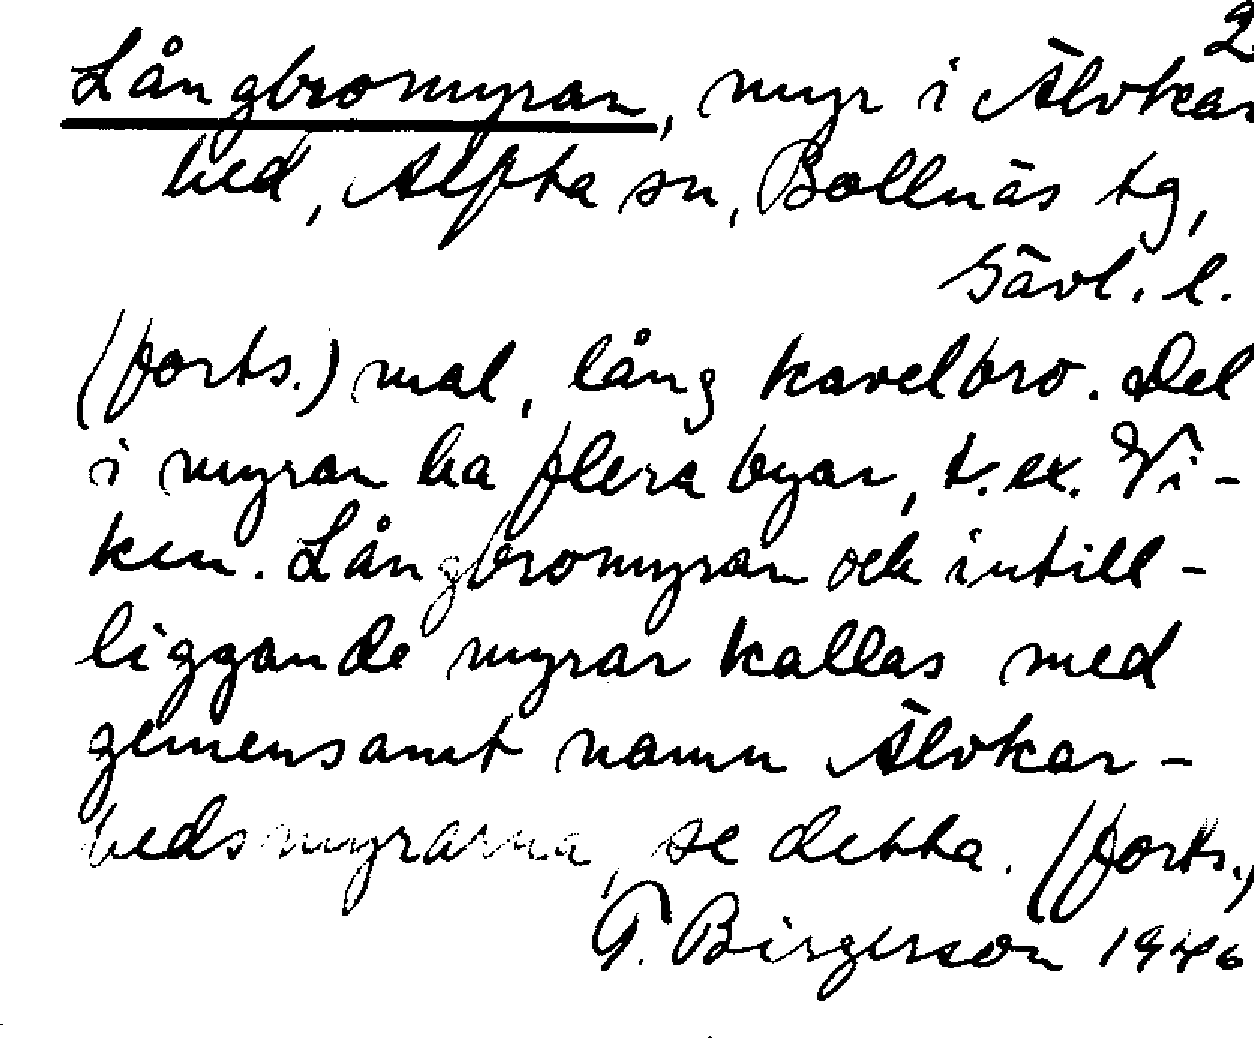 2.
Långbromyran, myr i Älvkar
hed, Alfta sn, Bollnäs tg,
Gävl. l.
(forts.) mal, lång kavelbro. Del
i myran ha flera byar, t. ex. Vi-
ken. Långbromyran och intill-
liggande myrar kallas med
gemensamt namn Älvkar-
hedsmyrarna, se detta. (forts.)
T. Birgerson 1946